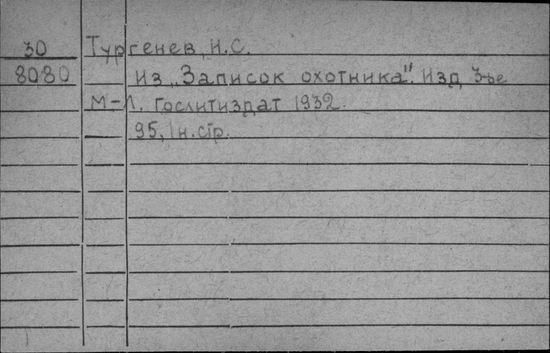 30 Тургенев, И.С.
8080 Из „Записок охотника". Изд 3ье
М-Л. Гослитиздат 1932.
95, 1 н. стр.